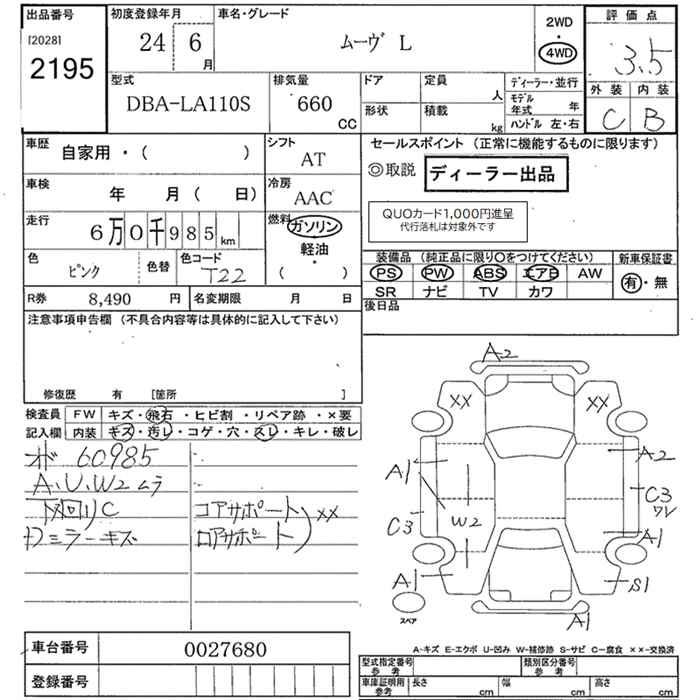 出品番号 初度登録年月 車名・グレード 2WD 評価点
[2028] 24 6 月 ムーヴ L 4WD 3.5
2195 外装 内装
型式 排気量 ドア 定員 人 ディーラー・並行 C B
DBA-LA110S 660 CC 形状 積載 kg モデル年式 年
ハンドル 左・右
車歴 自家用・( ) シフト AT セールスポイント (正常に機能するものに限ります)
◎取説 ディーラー出品
車検 年 月 ( 日) 冷房 AAC
QUOカード1,000円進呈
代行落札は対象外です
走行 6万0千985km 燃料 ガソリン
軽油・
( )
色 ピンク 色替 色コード T22
装備品 (純正品に限り○をつけてください) 新車保証書
PS PW ABS エアB AW 有・無
SR ナビ TV カワ
R券 8,490 円 名変期限 月 日
後日品
注意事項申告欄 (不具合内容等は具体的に記入して下さい)
修復歴 有 [箇所 ]
検査員 FW キズ・飛石・ヒビ割・リペア跡・×要
記入欄 内装 キズ・汚レ・コゲ・穴・スレ・キレ・破レ
オド 60985
A、U、W2 ムラ
下回りC コアサポート
ロアサポート ××
Dミラーキズ
A2
×× ××
A1 A2
C3 W2 C3
ワレ
A1
A1 S1
スペア A1
A-キズ E-エクボ U-凹み W-補修跡 S-サビ C-腐食 ××-交換済
車台番号 0027680
登録番号
型式指定番号 参考 類別区分番号 参考
車庫証明用 参考 長さ cm 幅 cm 高さ cm